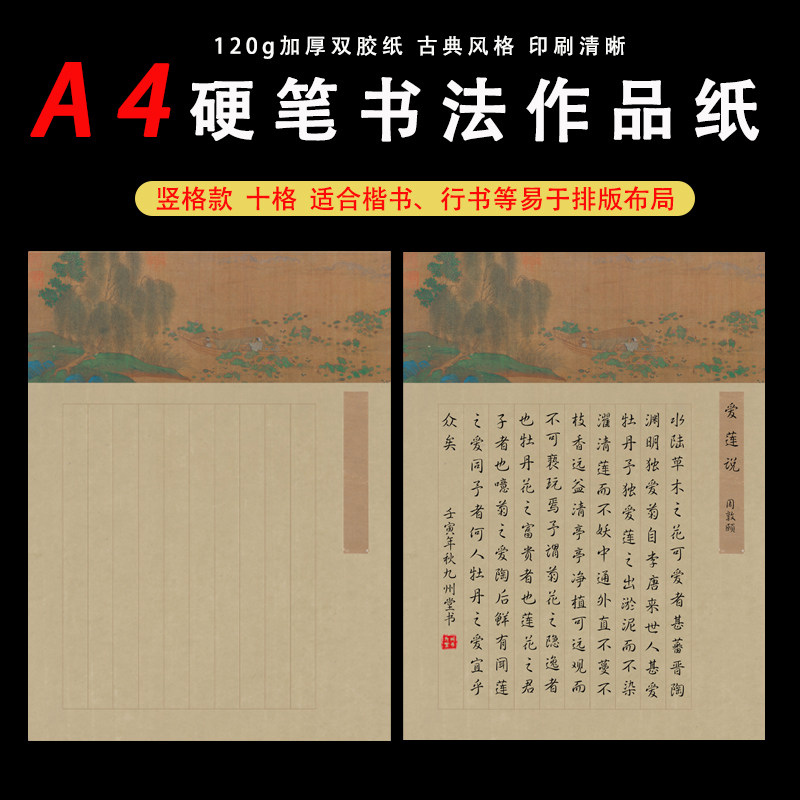 120g加厚双胶纸 古典风格 印刷清晰
A4硬笔书法作品纸
竖格款 十格 适合楷书、行书等易于排版布局
爱莲说
周敦颐
水陆草木之花可爱者甚蕃晋陶
渊明独爱菊自李唐来世人甚爱
牡丹予独爱莲之出淤泥而不染
濯清莲而不妖中通外直不蔓不
枝香远益清亭亭净植可远观而
不可亵玩焉予谓菊花之隐逸者
也牡丹花之富贵者也莲花之君
子者也噫菊之爱陶后鲜有闻莲
之爱同予者何人牡丹之爱宜乎
众矣
壬寅年秋九州堂书